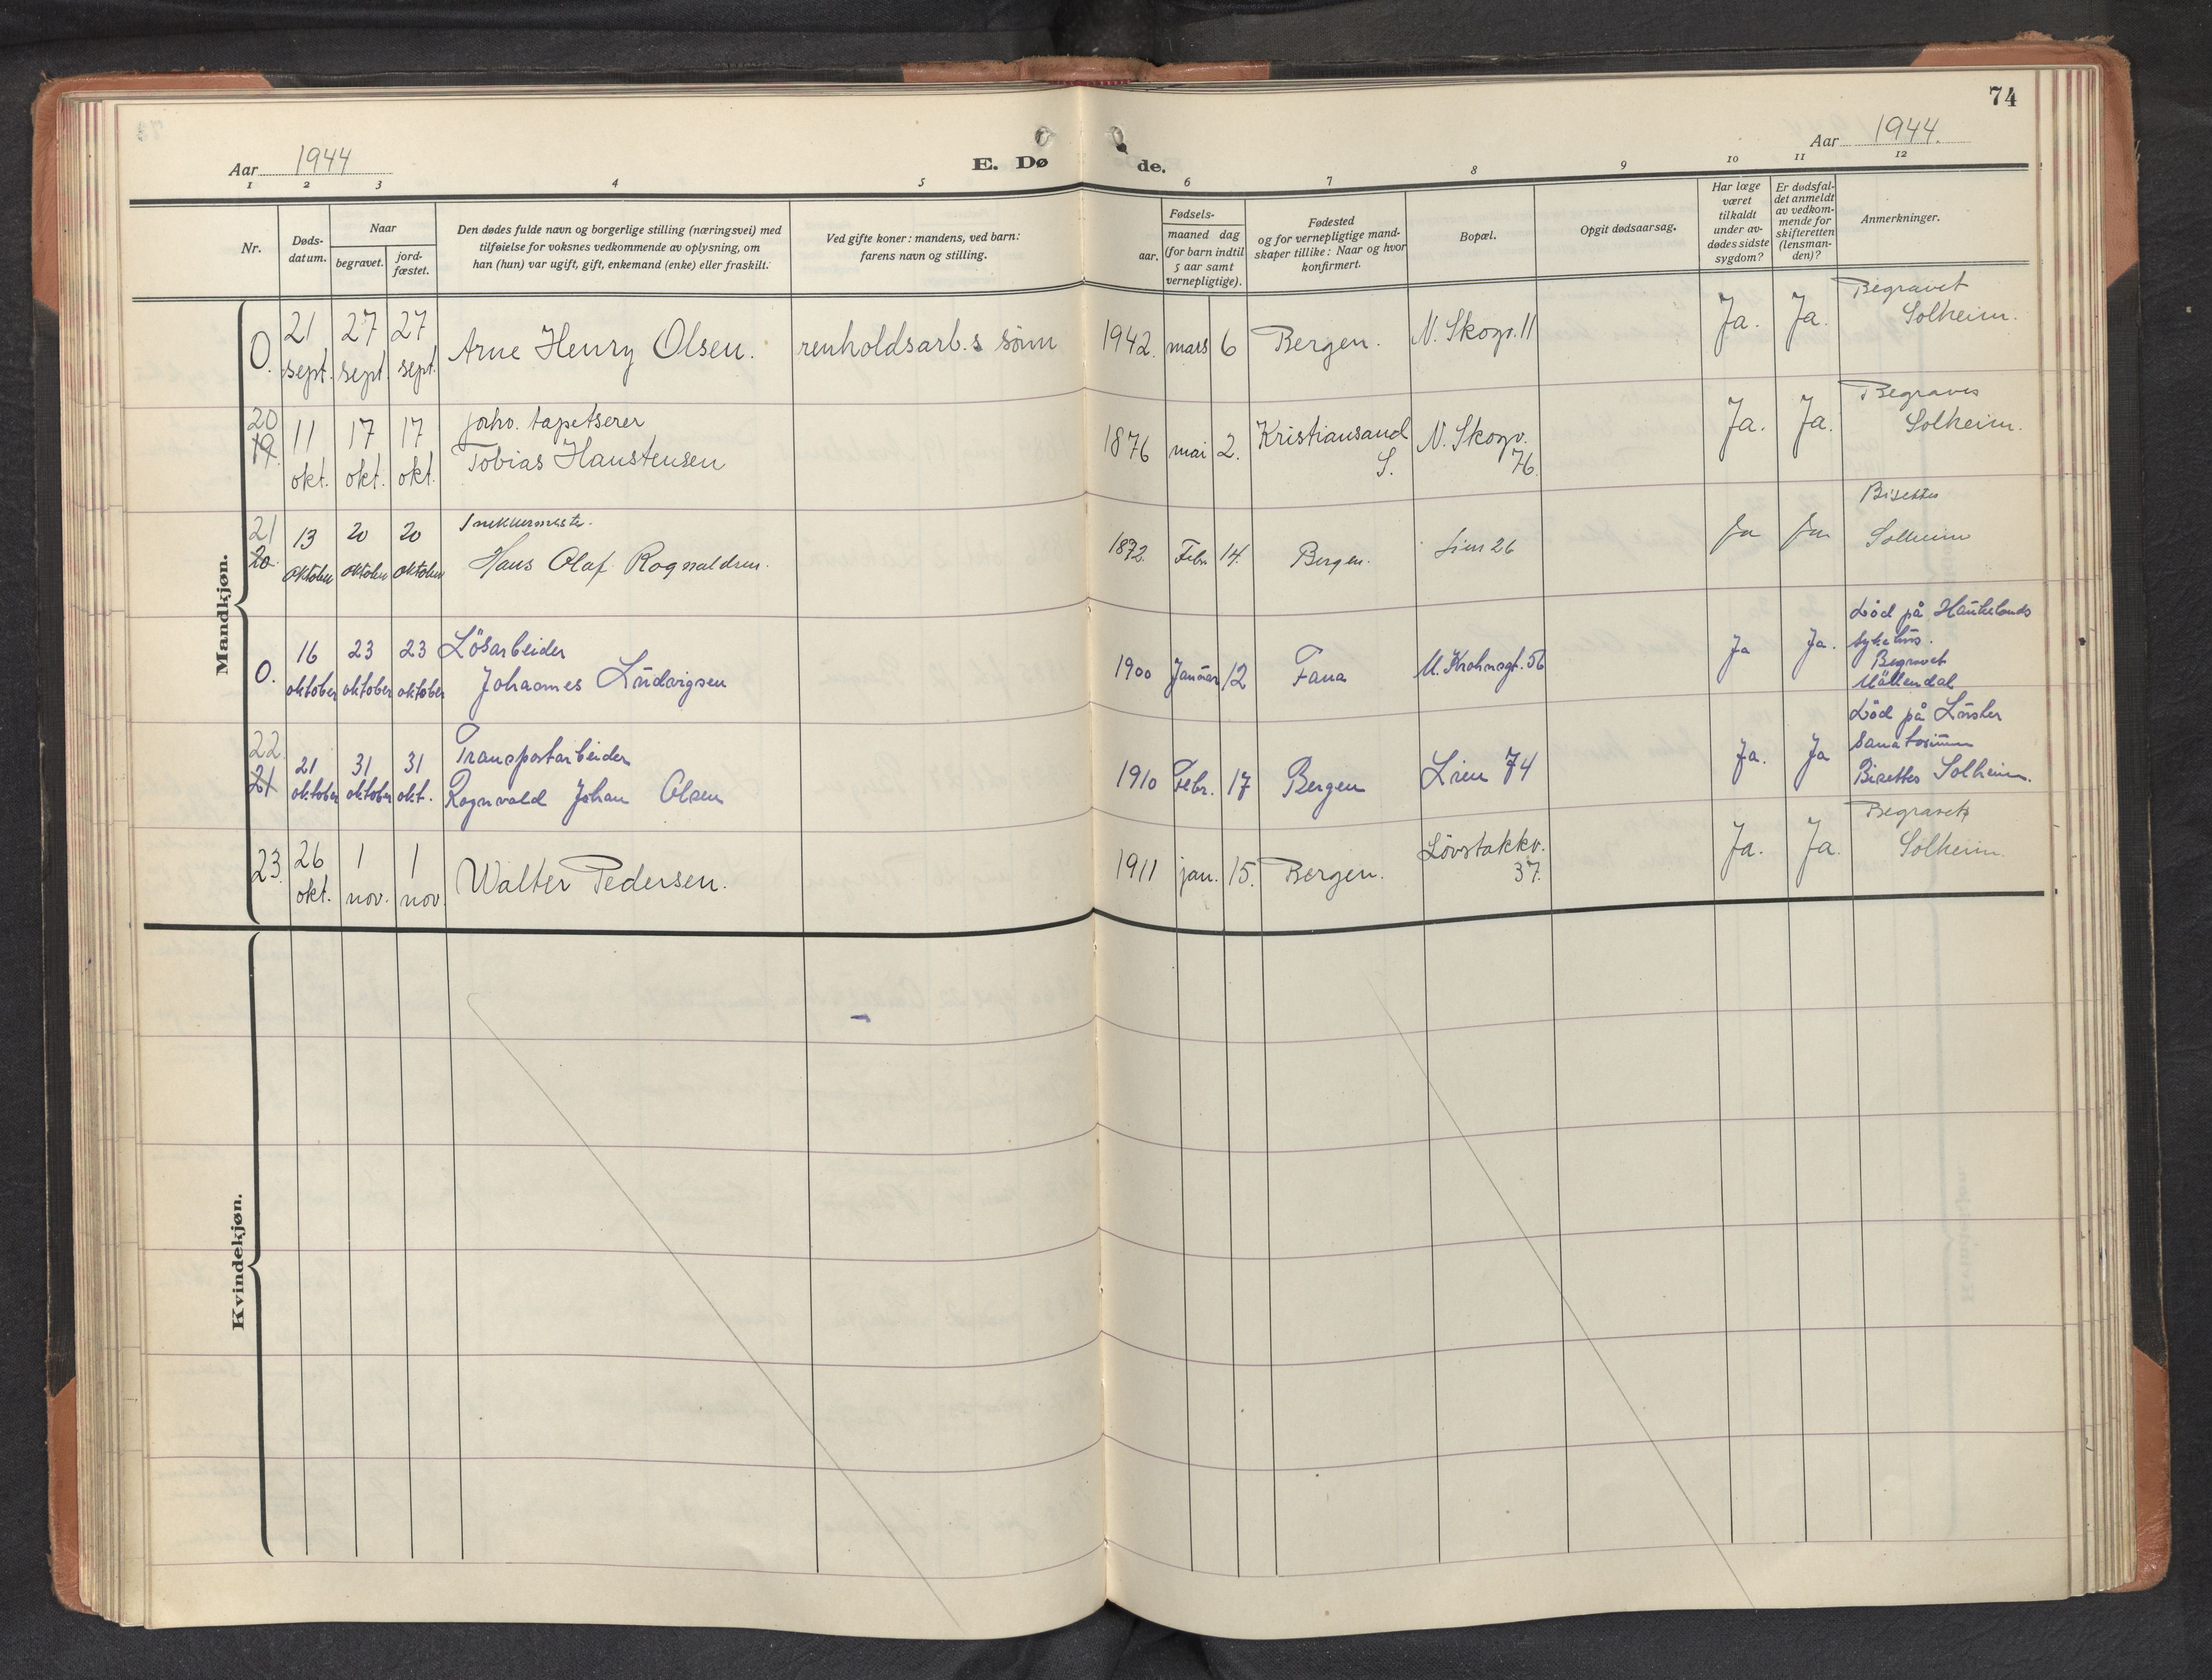 74
Aar 1944
Aar 1944.
E. Dø de.
1 2 3 4 5 6 7 8 9 10 11 12
Nr.
Døds-
datum.
Naar
begravet.
jord-
fæstet.
Den dødes fulde navn og borgerlige stilling (næringsvei) med
tilføielse for voksnes vedkommende av oplysning, om
han (hun) var ugift, gift, enkemand (enke) eller fraskilt.
Ved gifte koner: mandens, ved barn:
farens navn og stilling.
Fødsels-
aar.
maaned dag
(for barn indtil
5 aar samt
vernepligtige).
Fødested
og for vernepligtige mand-
skaper tillike: Naar og hvor
konfirmert.
Bopæl.
Opgit dødsaarsag.
Har læge
været
tilkaldt
under av-
dødes sidste
sygdom?
Er dødsfal-
det anmeldt
av vedkom-
mende for
skifteretten
(lensman-
den)?
Anmerkninger.
Mandkjøn.
0. 21 sept. 27 sept. 27 sept. Arne Henry Olsen. renholdsarb.s sønn 1942. mars 6 Bergen. N. Skogv. 11 Ja. Ja. Begravet
Solheim.
20
19. 11 okt. 17 okt. 17 okt. forhv. tapetserer
Tobias Haustensen 1876 mai 2. Kristiansand
S. N. Skogv.
76. Ja. Ja. Begraves
Solheim.
21
20. 13 oktober 20 oktober 20 oktober Snekkermester.
Hans Olaf Rognaldsen. 1872. Febr 14. Bergen. Lien 26 Ja Ja Bisettes
Solheim
0. 16 oktober 23 oktober 23 oktober Lösarbeider
Johannes Ludvigsen 1900 Januar 12 Fana M. Krohnsgt. 56 Ja Ja. Död på Haukelands
sykehus.
Begravet
Möllendal
22.
21 21 oktober 31 oktober 31 okt. Transportarbeider
Rognvald Johan Olsen 1910 Febr. 17 Bergen Lien 74 Ja. Ja Död på Luster
Sanatorium
Bisettes Solheim.
23. 26 okt. 1 nov. 1 nov Walter Pedersen. 1911 jan. 15. Bergen. Løvstakkv.
37. Ja. Ja. Begravets
Solheim.
Kvindekjøn.